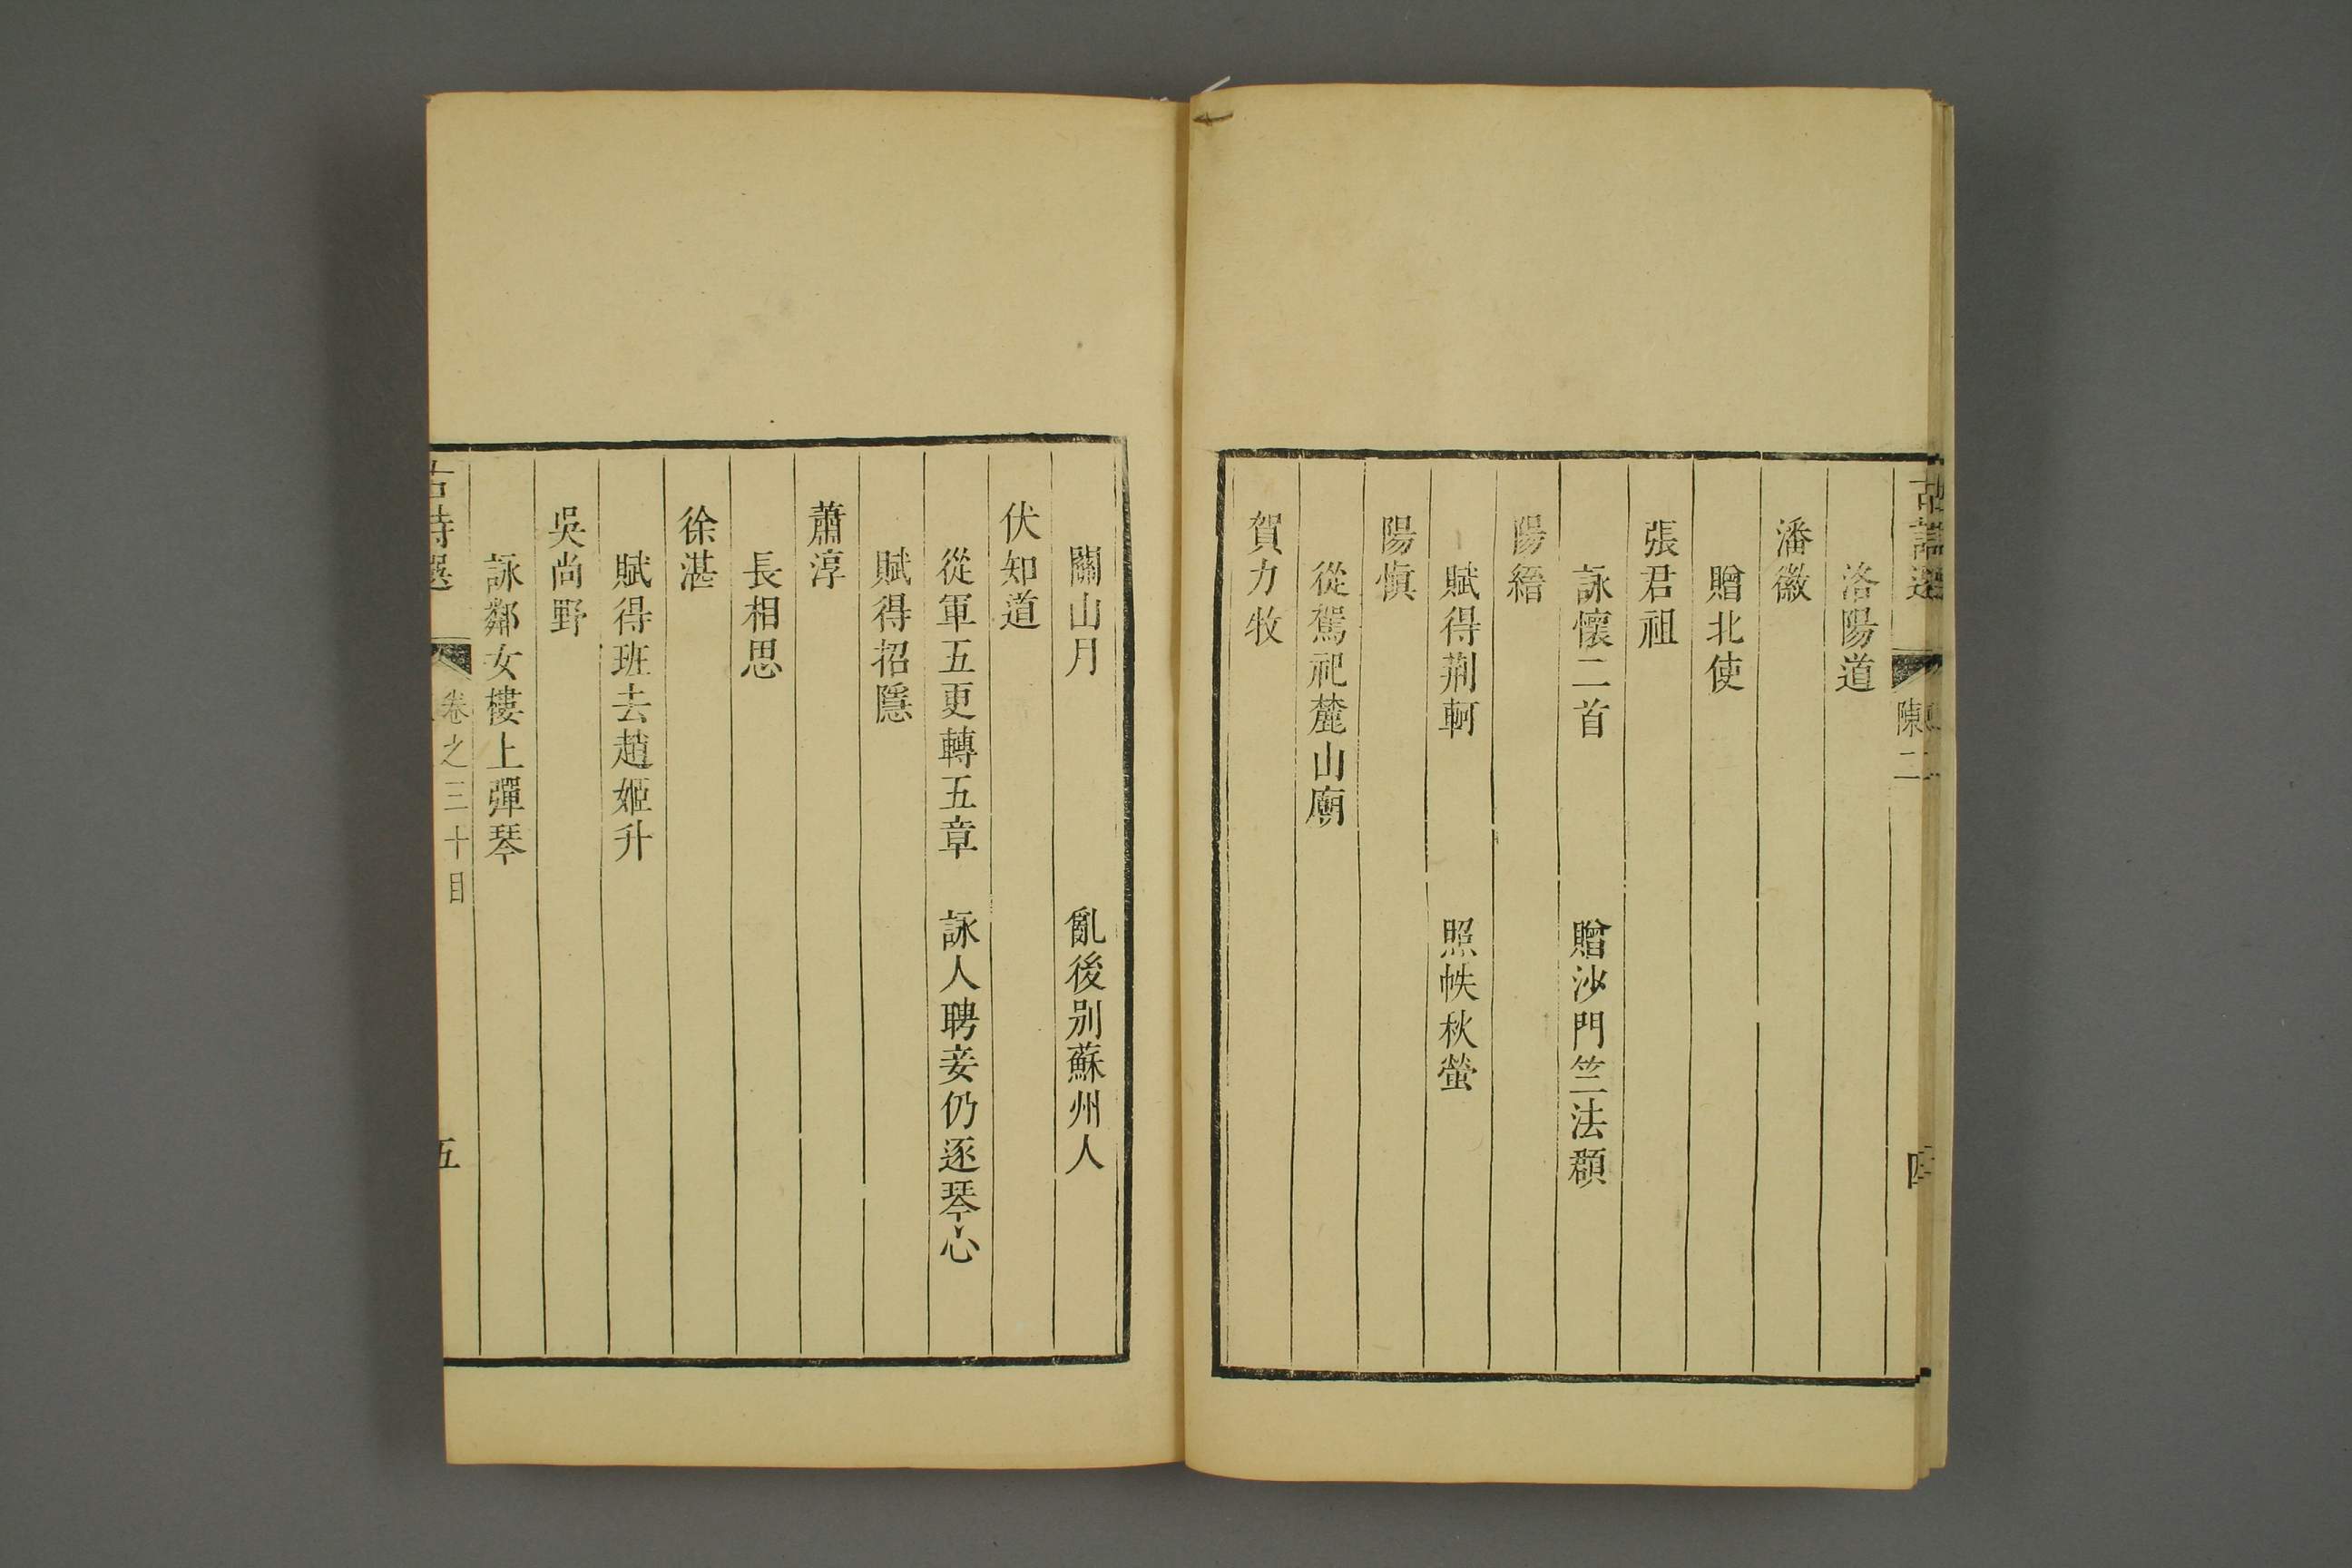 陳二
洛陽道
潘徽
贈北使
張君祖
詠懷二首　贈沙門竺法頵
陽縉
賦得荆軻　照帙秋螢
陽慎
從駕祀麓山廟
賀力牧
關山月　亂後别蘇州人
伏知道
從軍五更轉五章　詠人聘妾仍逐琴心
賦得招隱
蕭淳
長相思
徐湛
賦得班去趙姬升
吳尚野
詠鄰女樓上彈琴
古詩選　卷之三十目　五